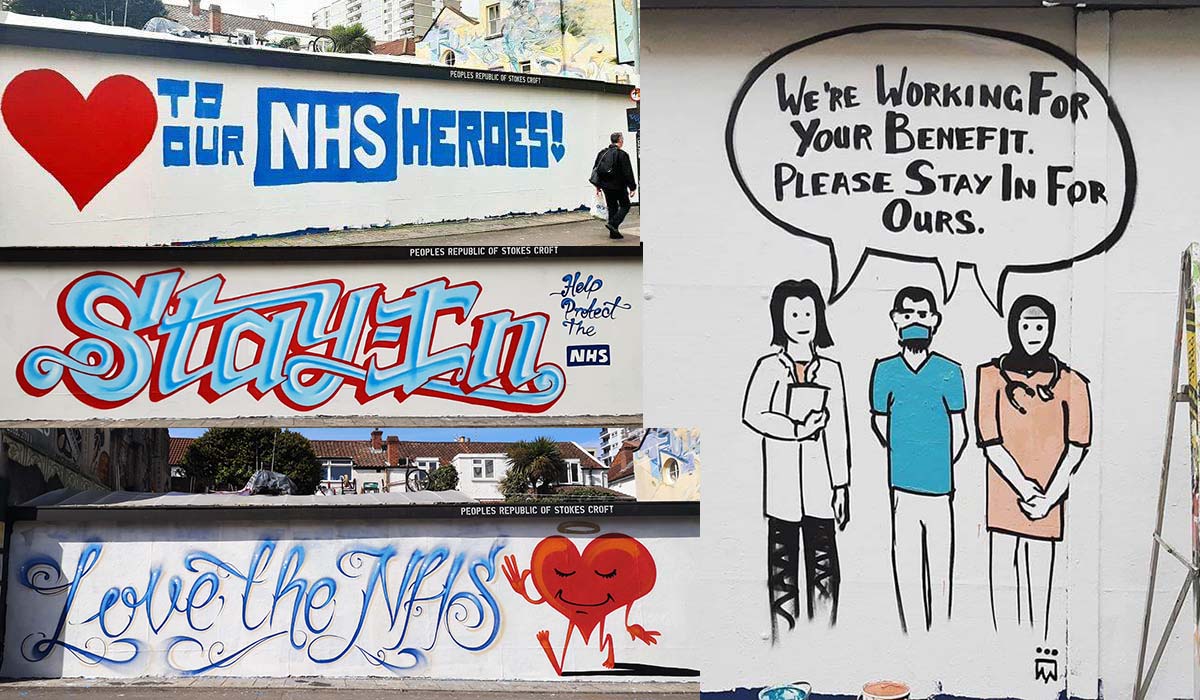 PEOPLES REPUBLIC OF STOKES CROFT
TO
OUR NHS HEROES!
PEOPLES REPUBLIC OF STOKES CROFT
Stay In
Help
Protect
The
NHS
PEOPLES REPUBLIC OF STOKES CROFT
Love the NHS
WE'RE WORKING FOR
YOUR BENEFIT.
PLEASE STAY IN FOR
OURS.